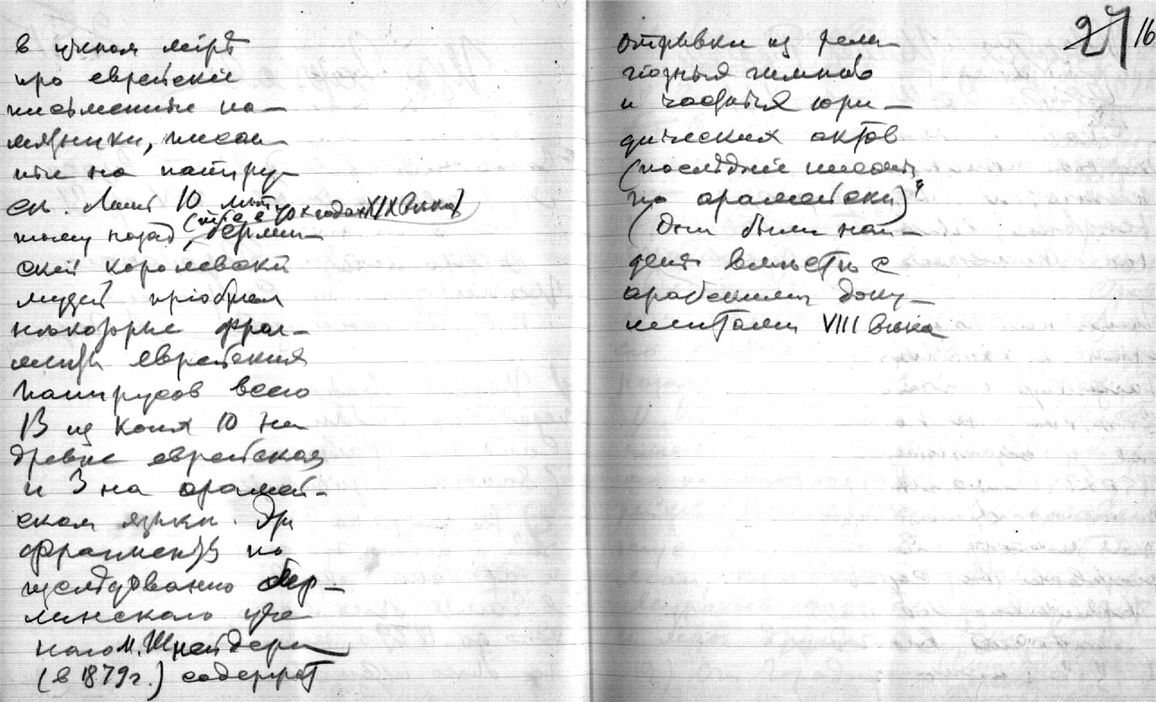 в ученом мірѣ
про еврейскіе
письменные па-
мятники, писан-
ные на папиру-
сѣ. Лишь 10 лѣт
(т. е. в 70х годах XIX вѣка)
тому назад, берлин-
скій королевскій
музей пріобрел
нѣкоторые фраг-
менты еврейских
папирусов всего
13 из коих 10 на
древне еврейском
и 3 на арамей-
ском языки. Эти
фрагменты по
изслѣдованію бер-
линскаго уче
наго М. Штейндера
(в 1879 г.) содержат
27 16
отрывки из рели
гіозных гимнов
и частных юри-
дических актов
(последніе писаны
по арамейски)"
(Они были най-
дены вмѣстѣ с
арабскими доку-
ментами VIII вѣка